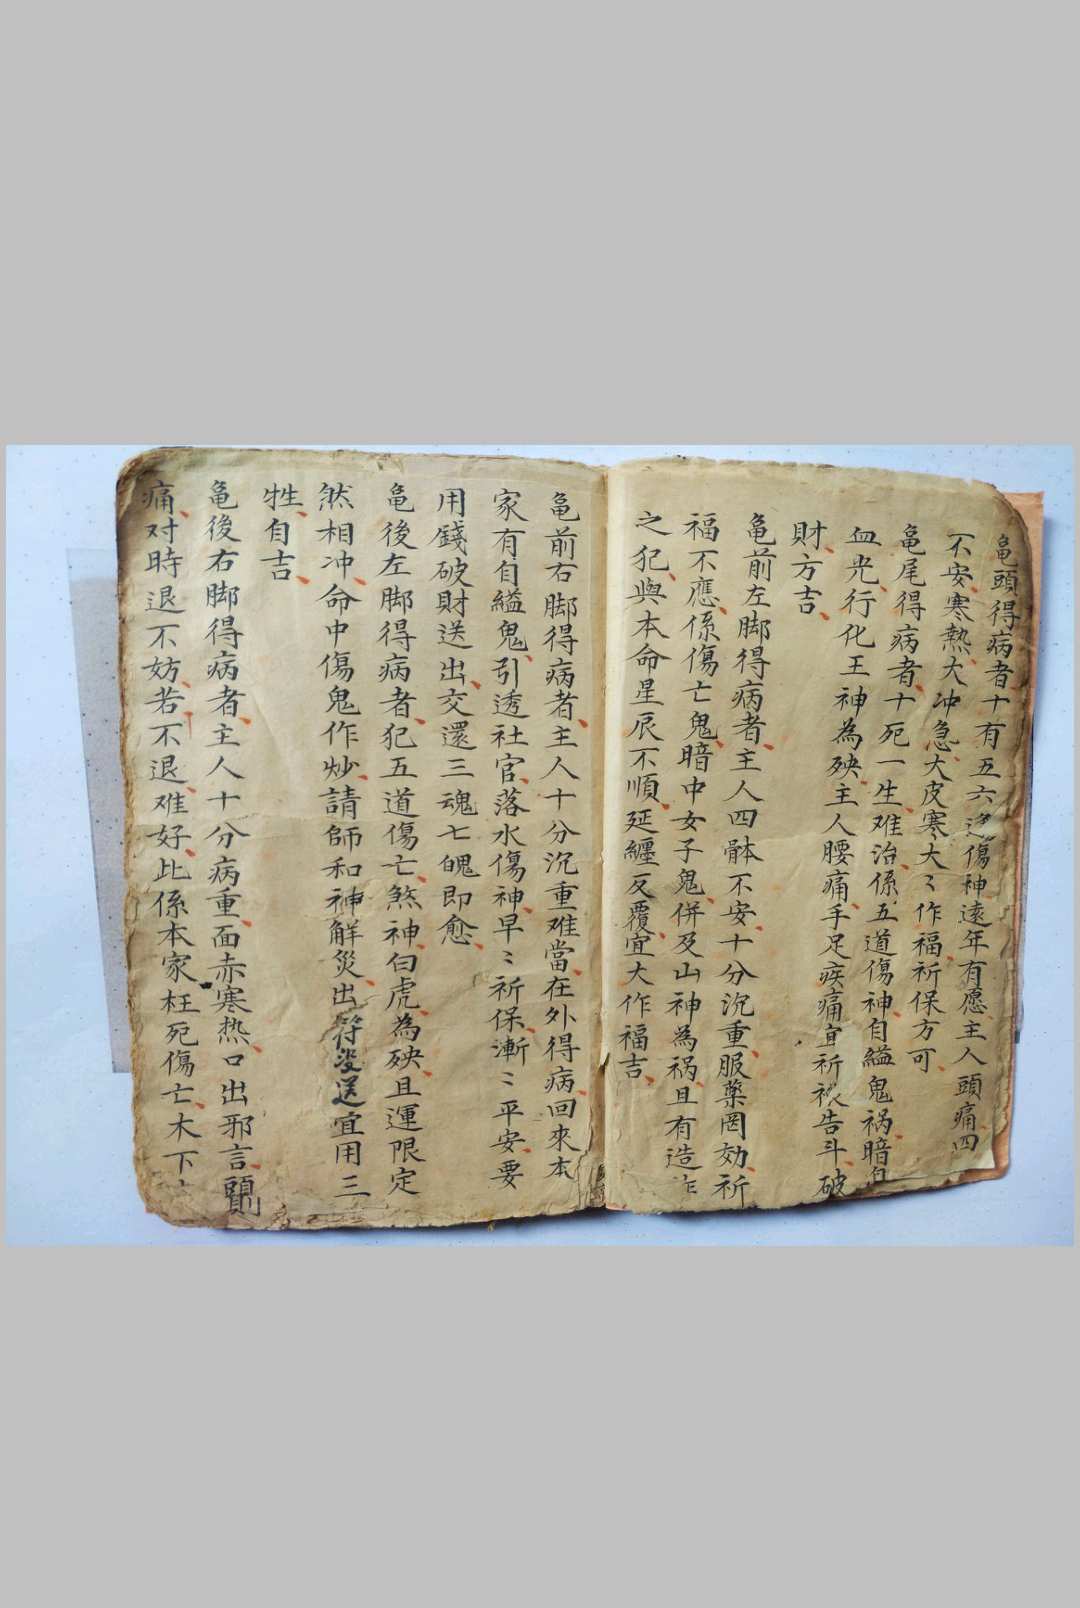 亀頭得病者十有五六逢傷神遠年有愿主人頭痛四
不安寒熱大冲急大皮寒大〻作福祈保方可
亀尾得病者十死一生难治係五道傷神自縊鬼祸暗
血光行化王神為殃主人腰痛手足疾痛宜祈禳告斗破
財方吉
亀前左脚得病者主人四骵不安十分沉重服藥罔効祈
福不應係傷亡鬼暗中女子鬼併及山神為祸且有造作
之犯與本命星辰不順延纏反覆宜大作福吉
亀前右脚得病者主人十分沉重难當在外得病回來本
家有自縊鬼引透社官落水傷神早〻祈保漸〻平安要
用錢破財送出交還三魂七魄即愈
亀後左脚得病者犯五道傷亡煞神白虎為殃且運限定
然相冲命中傷鬼作炒請師和神解災出符送宜用三
牲自吉
亀後右脚得病者主人十分病重面赤寒热口出邪言頭
痛对時退不妨若不退难好此係本家枉死傷亡木下